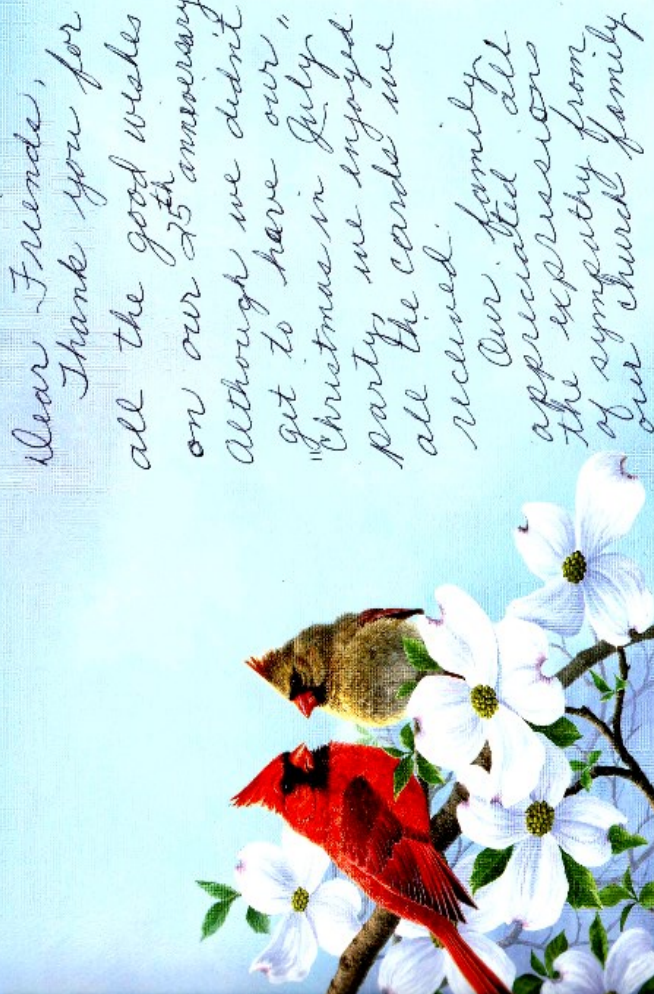 Dear Friends,
Thank you for
all the good wishes
on our 25th anniversary
Although we didn't
get to have our "
"Christmas in July
party, we enjoyed
all the cards we
received.
Our family
appreciated all
the expressions
of sympathy from
our church family